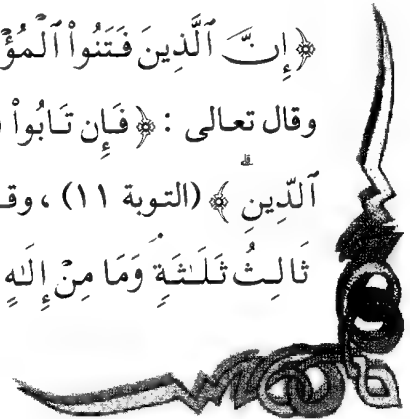 ﴿ إِنَّ ٱلَّذِينَ فَتَنُوا۟ ٱلْمُؤْ
وقال تعالى : ﴿ فَإِن تَابُوا۟
ٱلدِّينِ ﴾ (التوبة ١١) ، وقـ
ثَالِثُ ثَلَـٰثَةٍ وَمَا مِنْ إِلَـٰهٍ